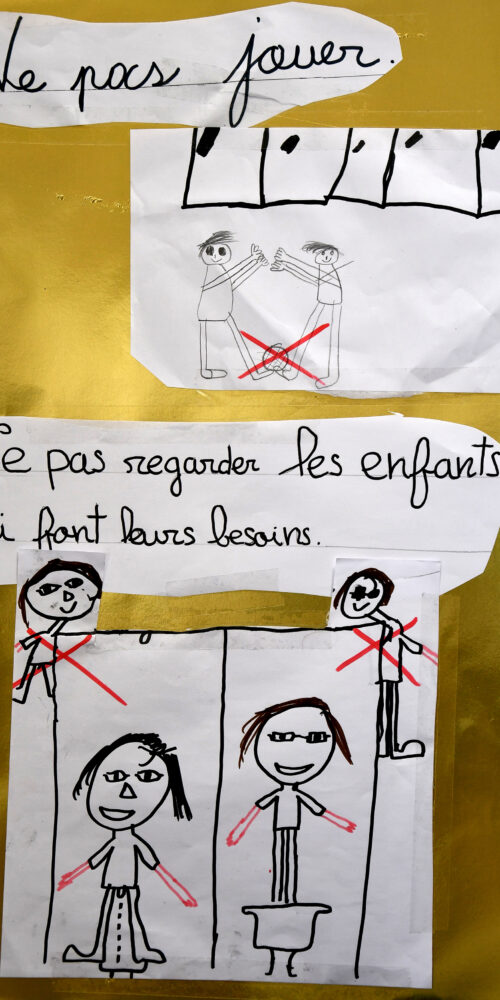 Ne pas jouer.
Ne pas regarder les enfants
i font leurs besoins.